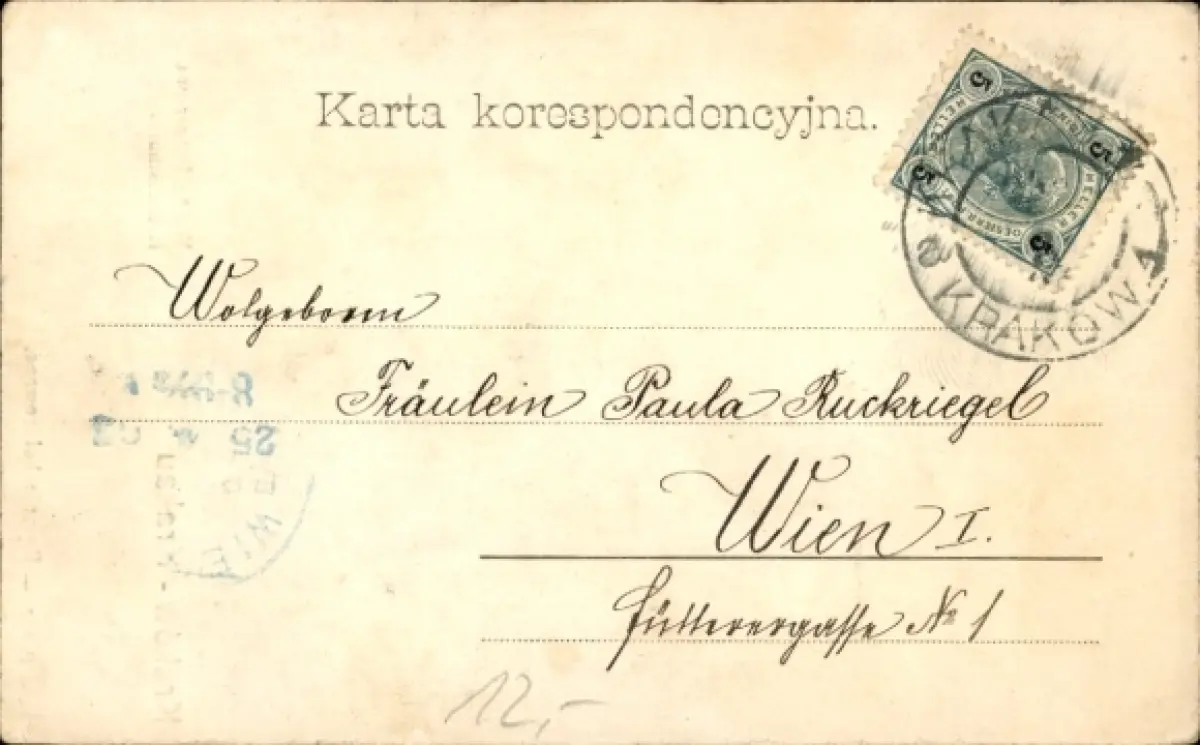 Karta korespondencyjna.
5 5 5 5
HELLER HELLER
KRAKÓW 1
Wolgeboren
Fräulein Paula Ruckriegel
Wien I.
Fütterergasse No 1
8
25
WIE
12,-